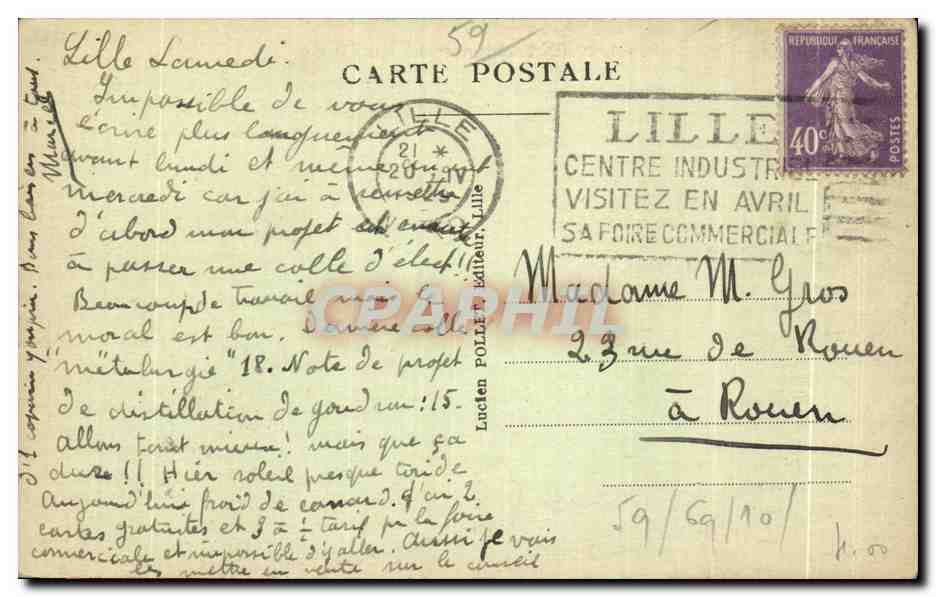 59
CARTE POSTALE
Lille Samedi.
Impossible de vous
écrire plus longuement
avant lundi et même avant
mercredi car j'ai à remettre
d'abord mon projet et ensuite
à passer une colle d'élect!!
Beaucoup de travail mais le
moral est bon. Dernière colle
"métallurgie" 18. Note de projet
de distillation de goudron : 15.
Allons tant mieux! mais que ça
dure!! Hier soleil presque torride
Aujourd'hui froid de canard. J'ai 2
cartes gratuites et 3 à ½ tarif pr la foire
comerciale et impossible d'y aller. Aussi je vais
les mettre en vente sur le conseil
d'1 copain youpin. Bons baisers à tous.
Marcel
LILLE
21 *
20 IV
LILLE
CENTRE INDUSTRIEL
VISITEZ EN AVRIL
SA FOIRE COMMERCIALE
REPUBLIQUE FRANÇAISE
40c
POSTES
Lucien POLLET, Editeur, Lille
CPAPHIL
Madame M. Gros
23 rue de Rouen
à Rouen
59/69/10/
4.00